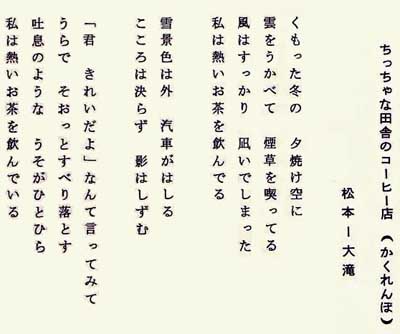 ちっちゃな田舎のコーヒー店 (かくれんぼ)
松本ー大滝
くもった冬の 夕焼け空に
雲をうかべて 煙草を喫ってる
風はすっかり 凪いでしまった
私は熱いお茶を飲んでる
雪景色は外 汽車がはしる
こころは決らず 影はしずむ
「君 きれいだよ」なんて言ってみて
うらで そおっとすべり落とす
吐息のような うそがひとひら
私は熱いお茶を飲んでいる